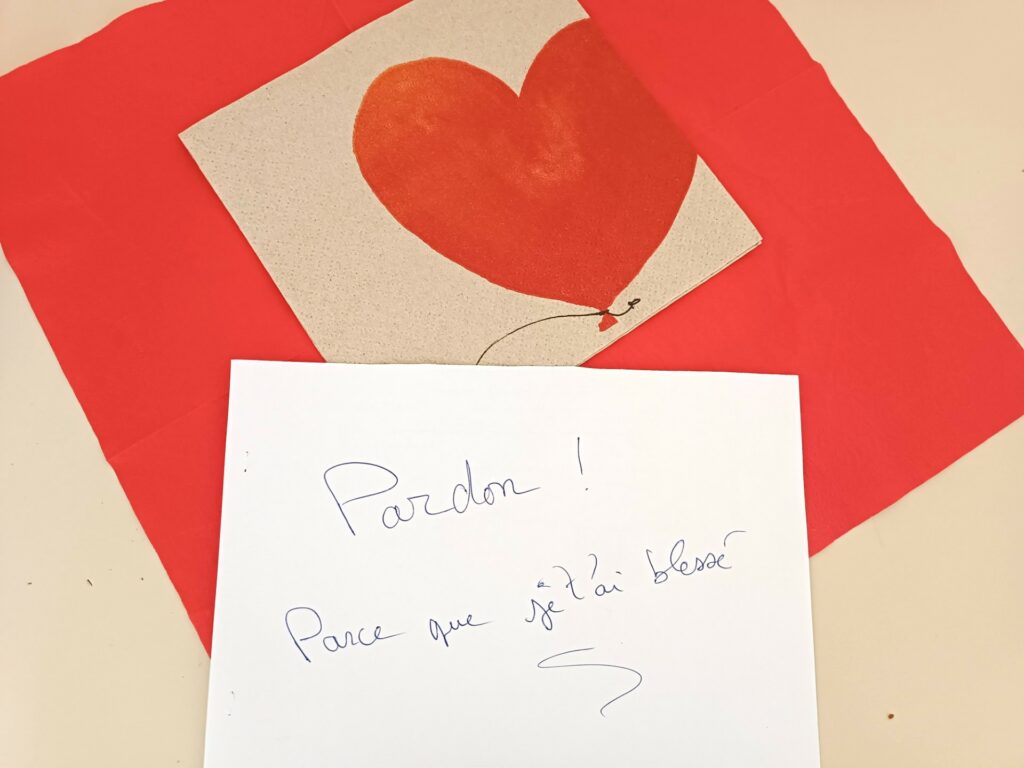 Pardon !
Parce que je t'ai blessé